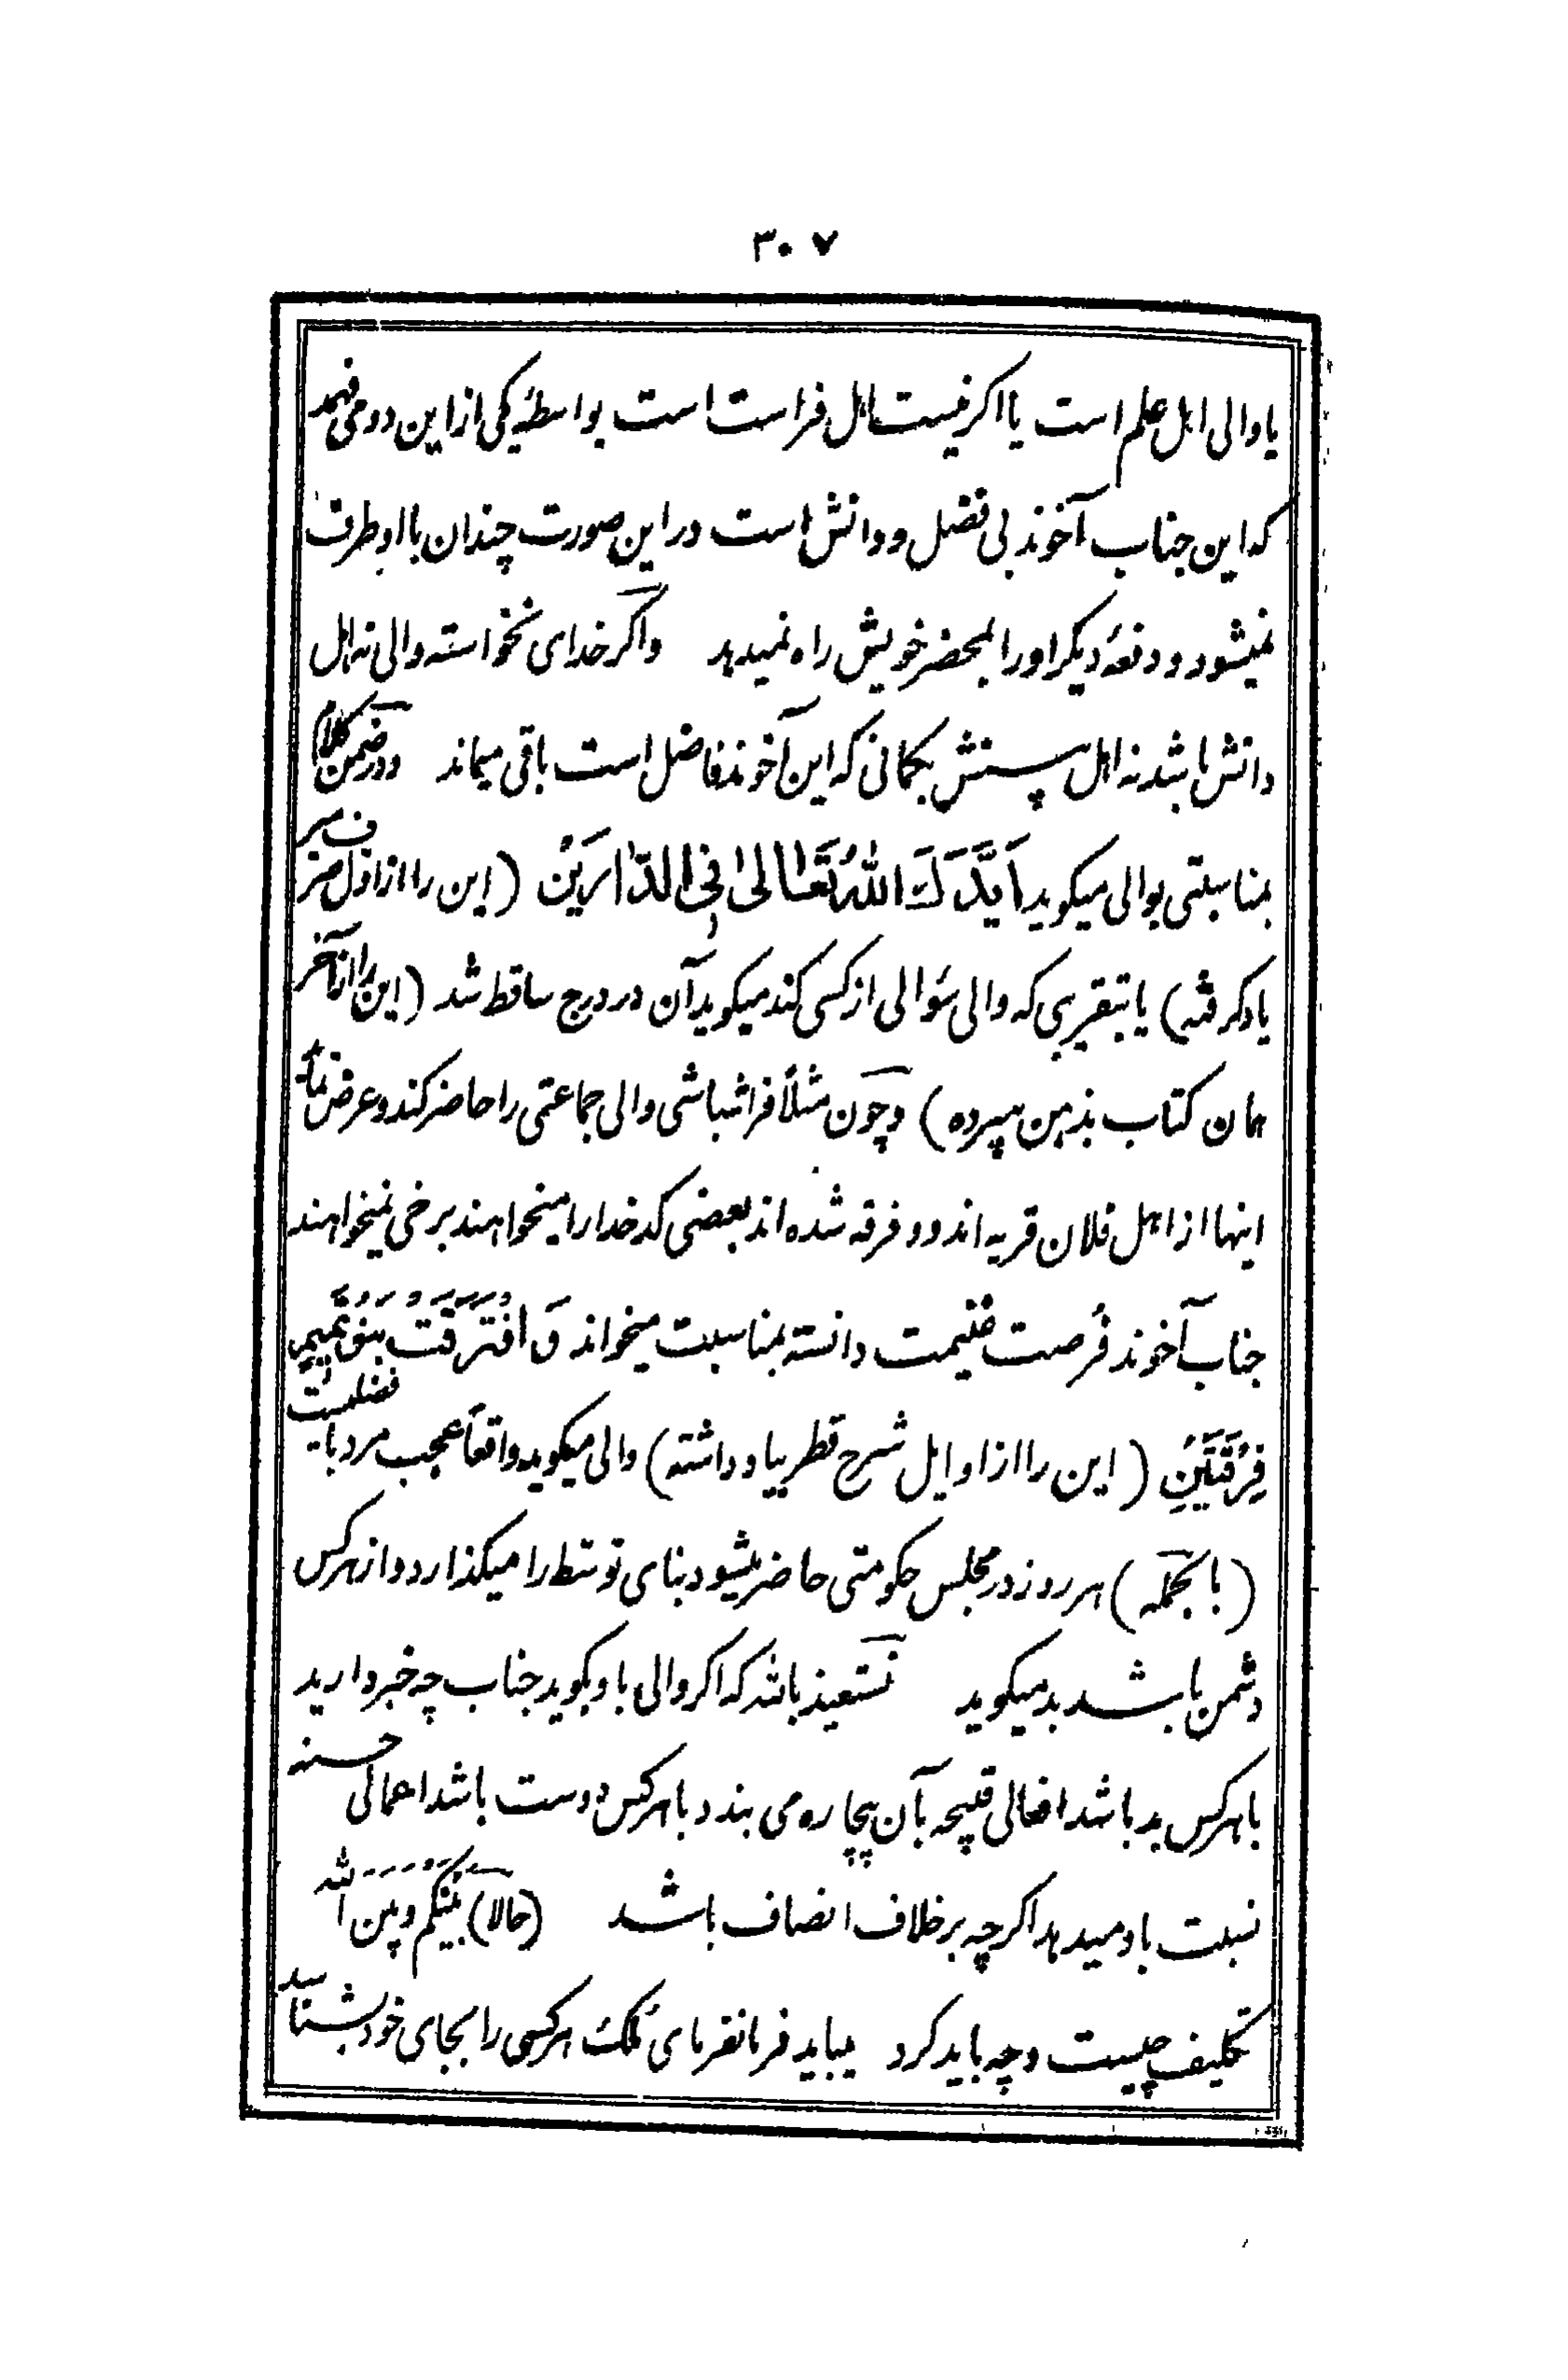 ۳۰۷
یا والی اهل علم است یا اکر نیست اهل فراست است بواسطهٔ یکی از این دو می‌فهمد
که این جناب آخوند بی فضل و دانش است در این صورت چندان با او طرف
نمیشود و دفعهٔ دیکر او را بمحضر خویش راه نمیدهد واکر خدای نخواسته والی نه اهل
دانش باشد نه اهل پرسش بکمانی که این آخوند فاضل است باقی میماند و در ضمن کلام
بمناسبتی بوالی میکوید اَیَّدَكَ اللهُ تَعَالىٰ فِی الدّٰارَیْن (این را از اول صرف میر
یاد کرفته) یا بتقریبی که والی سؤالی از کسی کند میکوید آن در درج ساقط شد (این را تا آخر
همان کتاب بذهن سپرده) و چون مثلاً فراشباشی والی جماعتی را حاضر کند و عرض نماید
اینها از اهل فلان قریه اند و دو فرقه شده اند بعضی کدخدا را میخواهند برخی نمیخواهند
جناب آخوند فرصت غنیمت دانسته بمناسبت میخواند وَ افْتَرَقَتْ بَنُو تَمیمٍ
فِرْقَتَیْنِ (این را از اوایل شرح قطر بیاد داشته) والی میکوید واقعاً عجب مرد با فضلیست
(بالجمله) هر روز در مجلس حکومتی حاضر میشود بنای توسّط را میکذارد و از هرکس
دشمن باشد بد میکوید نستعیذ بالله که اکر والی باو بکوید جناب چه خبر دارید
با هرکس بد باشد افعالی قبیحه بآن بیچاره می بندد با هرکس دوست باشد اعمالی حسنه
نسبت باو میدهد اکرچه بر خلاف انصاف باشد (حالا) بَیْنَکُم وَ بَیْنَ اللّٰه
تکلیف چیست و چه باید کرد میباید فرمانفرمای مُلک هرکسی را بجای خود بشناسد